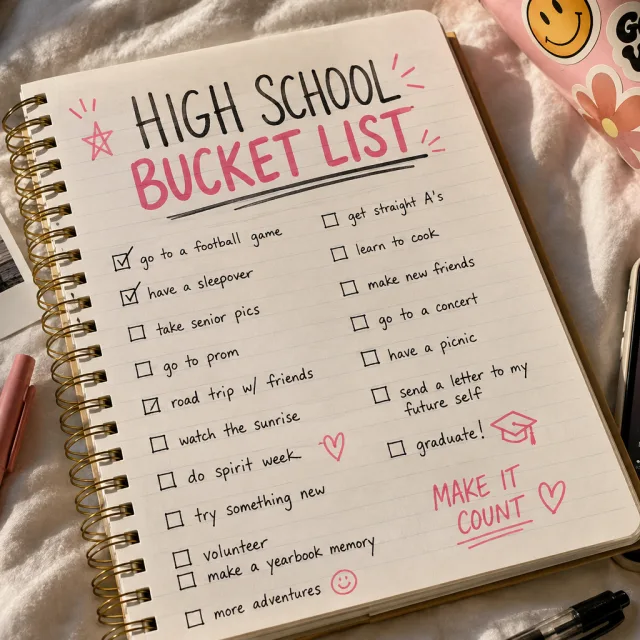 HIGH SCHOOL
BUCKET LIST
go to a football game
have a sleepover
take senior pics
go to prom
road trip w/ friends
watch the sunrise
do spirit week
try something new
volunteer
make a yearbook memory
more adventures
get straight A's
learn to cook
make new friends
go to a concert
have a picnic
send a letter to my
future self
graduate!
MAKE IT
COUNT